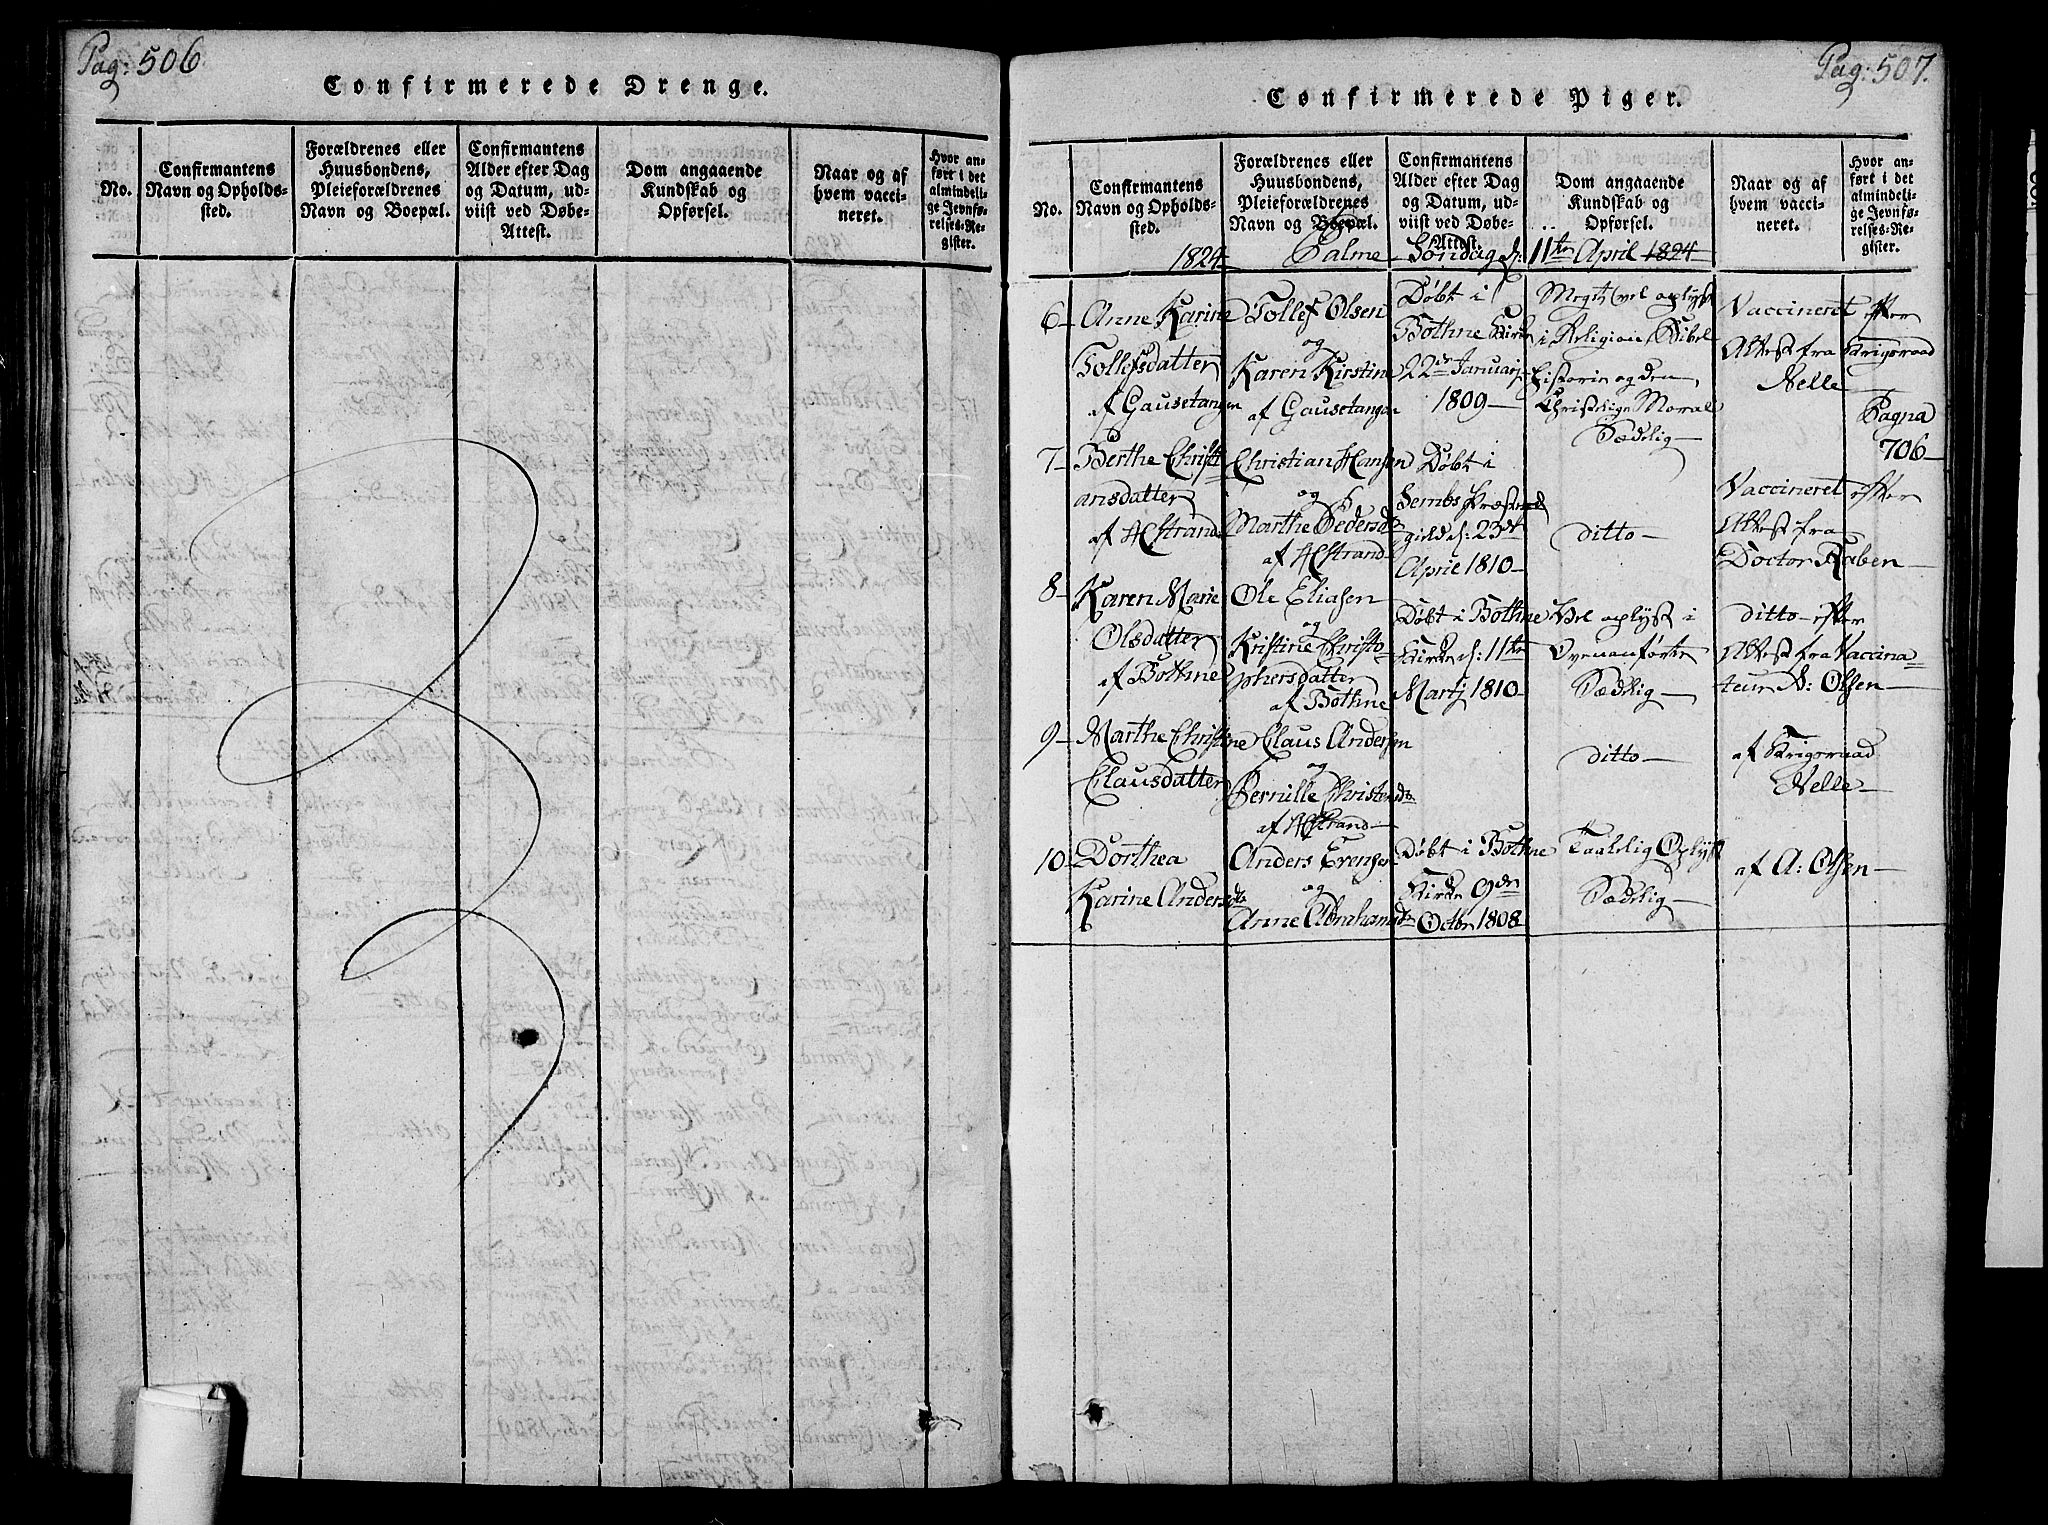 Pag: 506
Confirmerede Drenge.
No.
Confirmantens
Navn og Opholds-
sted.
Forældrenes eller
Huusbondens,
Pleieforældrenes
Navn og Boepæl.
Confirmantens
Alder efter Dag
og Datum, ud-
viist ved Døbe-
Attest.
Dom angaaende
Kundskab og
Opførsel.
Naar og af
hvem vacci-
neret.
Hvor an-
ført i det
almindeli-
ge Jevnfø-
relses-Re-
gister.
Pag: 507.
Confirmerede Piger.
No.
Confirmantens
Navn og Opholds-
sted.
Forældrenes eller
Huusbondens,
Pleieforældrenes
Navn og Boepæl.
Confirmantens
Alder efter Dag
og Datum, ud-
viist ved Døbe-
Attest.
Dom angaaende
Kundskab og
Opførsel.
Naar og af
hvem vacci-
neret.
Hvor an-
ført i det
almindeli-
ge Jevnfø-
relses-Re-
gister.
1824 Palme-Søndag d: 11te April 1824
6-
Anne Karine
Tollefsdatter
af Gausetangen
Tollef Olsen
og
Karen Kirstine
af Gausetangen
Døbt i
Bothne Kirke
22de Januarj
1809-
Megit vel oplyst
i Religion, Bibel
Historie og den
Christelige Moral
Sædelig-
Vaccineret efter
Attest fra Krigsraad
Nelle
Pagna
706-
7-
Berthe Christi
ansdatter
af H Strand
Christian Hansen
og
Marthe Pedersdr
af H Strand
Døbt i
Sembs Præste
gield d: 23de
April 1810-
ditto-
Vaccineret efter
Attest fra
Doctor Raben-
8-
Karen Marie
Olsdatter
af Bothne
Ole Eliasen
og
Kristine Christo
phersdatter
af Bothne
Døbt i Bothne
Kirke d: 11te
Martj 1810-
Vel oplyst i
Ovenanførte
Sædelig-
ditto-efter
Attest fra Vaccina-
teur A: Olsen-
9-
Marthe Christine
Clausdatter
Claus Andersen
og
Pernille Christensdr
af H Strand-
ditto-
af Krigsraad
Nelle-
10-
Dorthea
Karine Andersdr
Anders Evensen
og
Anne Abrahamsdr
Døbt i Bothne
Kirke 9de
Octbr 1808
Taalelig Oplyst
Sædelig-
af A: Olsen-